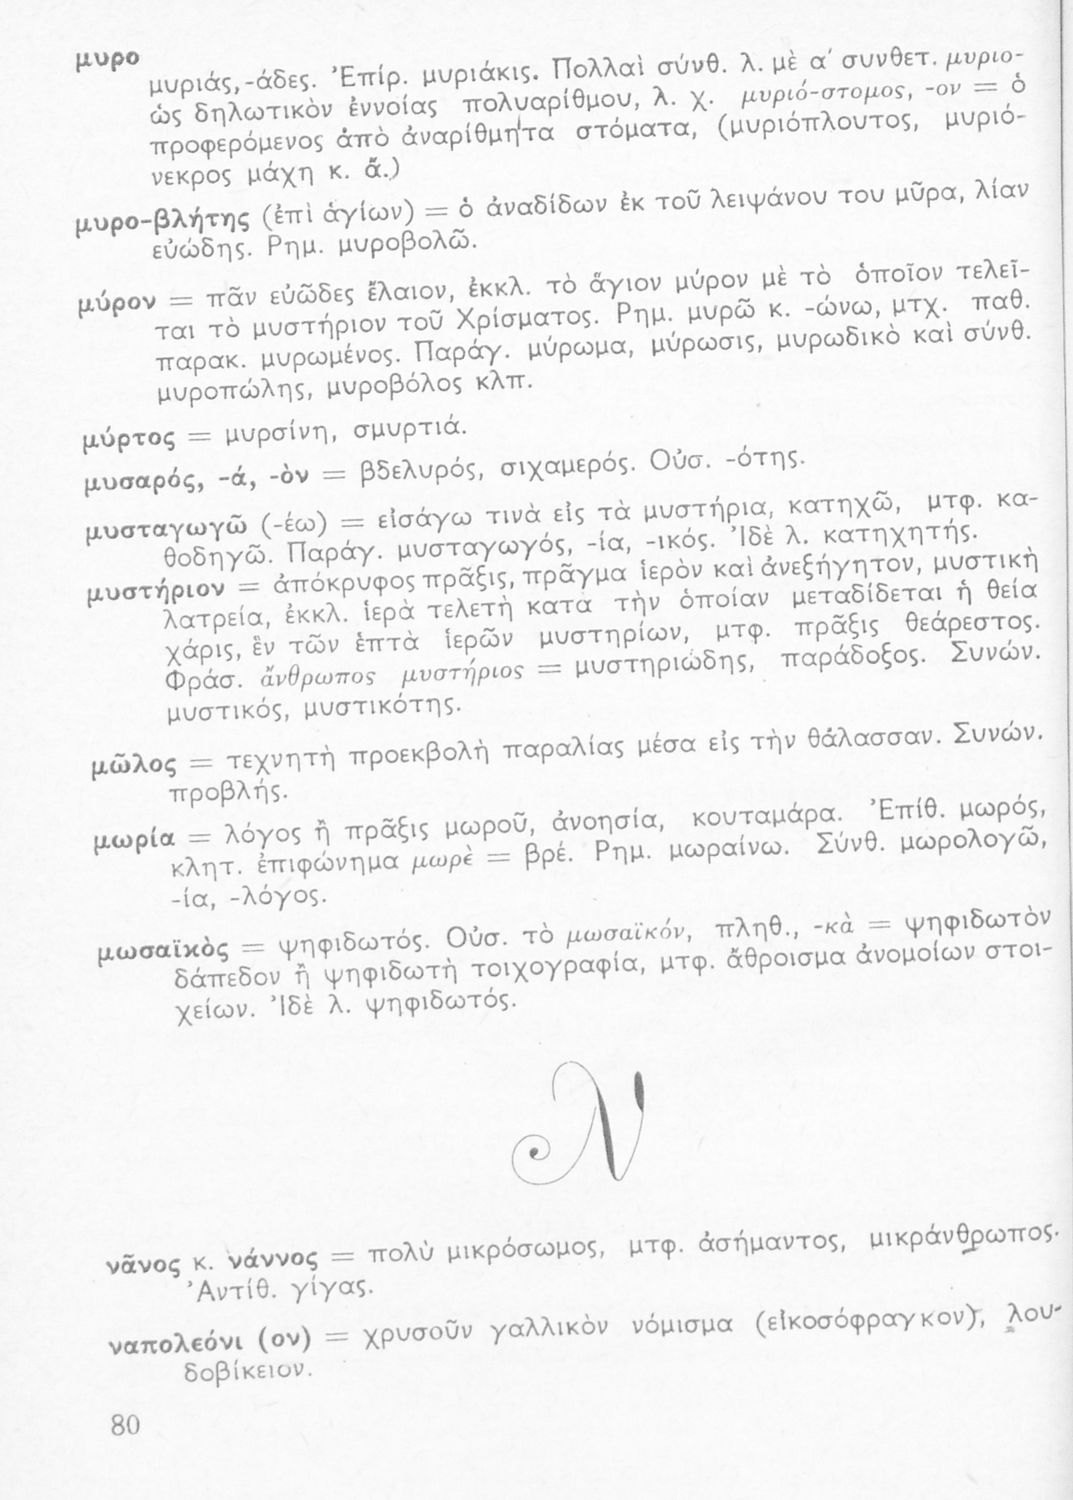 μυρο
μυριάς,-άδες. Ἐπίρ. μυριάκις. Πολλαὶ σύνθ. λ. μὲ α' συνθετ. μυριο-
ὡς δηλωτικὸν ἐννοίας πολυαρίθμου, λ. χ. μυριό-στομος, -ον = ὁ
προφερόμενος ἀπὸ ἀναρίθμητα στόματα, (μυριόπλουτος, μυριό-
νεκρος μάχη κ. ἄ.)
μυρο-βλήτης (ἐπὶ ἁγίων) = ὁ ἀναδίδων ἐκ τοῦ λειψάνου του μῦρα, λίαν
εὐώδης. Ρημ. μυροβολῶ.
μύρον = πᾶν εὐῶδες ἔλαιον, ἐκκλ. τὸ ἅγιον μύρον μὲ τὸ ὁποῖον τελεῖ-
ται τὸ μυστήριον τοῦ Χρίσματος. Ρημ. μυρῶ κ. -ώνω, μτχ. παθ.
παρακ. μυρωμένος. Παράγ. μύρωμα, μύρωσις, μυρωδικὸ καὶ σύνθ.
μυροπώλης, μυροβόλος κλπ.
μύρτος = μυρσίνη, σμυρτιά.
μυσαρός, -ά, -ὸν = βδελυρός, σιχαμερός. Οὐσ. -ότης.
μυσταγωγῶ (-έω) = εἰσάγω τινὰ εἰς τὰ μυστήρια, κατηχῶ, μτφ. κα-
θοδηγῶ. Παράγ. μυσταγωγός, -ία, -ικός. Ἰδὲ λ. κατηχητής.
μυστήριον = ἀπόκρυφος πρᾶξις, πρᾶγμα ἱερὸν καὶ ἀνεξήγητον, μυστικὴ
λατρεία, ἐκκλ. ἱερὰ τελετὴ κατὰ τὴν ὁποίαν μεταδίδεται ἡ θεία
χάρις, ἓν τῶν ἑπτὰ ἱερῶν μυστηρίων, μτφ. πρᾶξις θεάρεστος.
Φράσ. ἄνθρωπος μυστήριος = μυστηριώδης, παράδοξος. Συνών.
μυστικός, μυστικότης.
μῶλος = τεχνητὴ προεκβολὴ παραλίας μέσα εἰς τὴν θάλασσαν. Συνών.
προβλής.
μωρία = λόγος ἢ πρᾶξις μωροῦ, ἀνοησία, κουταμάρα. Ἐπίθ. μωρός,
κλητ. ἐπιφώνημα μωρὲ = βρέ. Ρημ. μωραίνω. Σύνθ. μωρολογῶ,
-ία, -λόγος.
μωσαϊκὸς = ψηφιδωτός. Οὐσ. τὸ μωσαϊκόν, πληθ., -κὰ = ψηφιδωτὸν
δάπεδον ἢ ψηφιδωτὴ τοιχογραφία, μτφ. ἄθροισμα ἀνομοίων στοι-
χείων. Ἰδὲ λ. ψηφιδωτός.
N
νᾶνος κ. νάννος = πολὺ μικρόσωμος, μτφ. ἀσήμαντος, μικράνθρωπος.
Ἀντίθ. γίγας.
ναπολεόνι (ον) = χρυσοῦν γαλλικὸν νόμισμα (εἰκοσόφραγκον), λου-
δοβίκειον.
80